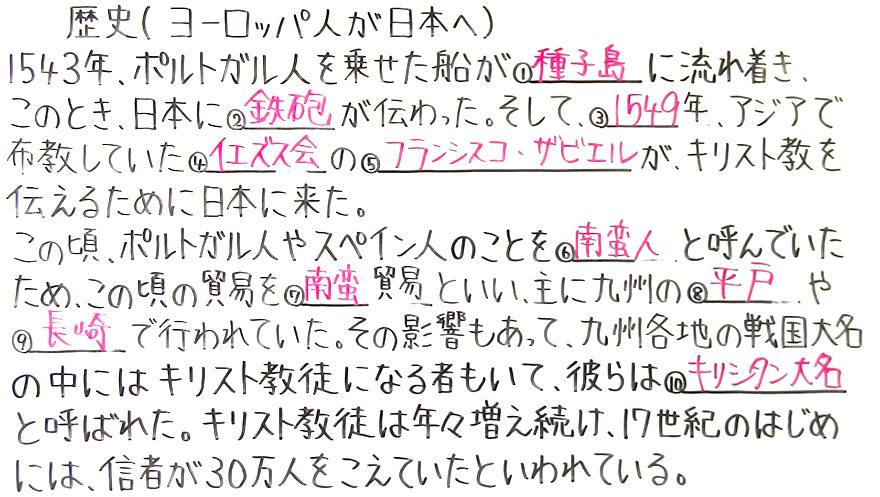 歴史(ヨーロッパ人が日本へ)
1543年、ポルトガル人を乗せた船が①種子島に流れ着き、
このとき、日本に②鉄砲が伝わった。そして、③1549年、アジアで
布教していた④イエズス会の⑤フランシスコ・ザビエルが、キリスト教を
伝えるために日本に来た。
この頃、ポルトガル人やスペイン人のことを⑥南蛮人と呼んでいた
ため、この頃の貿易を⑦南蛮貿易といい、主に九州の⑧平戸や
⑨長崎で行われていた。その影響もあって、九州各地の戦国大名
の中にはキリスト教徒になる者もいて、彼らは⑩キリシタン大名
と呼ばれた。キリスト教徒は年々増え続け、17世紀のはじめ
には、信者が30万人をこえていたといわれている。